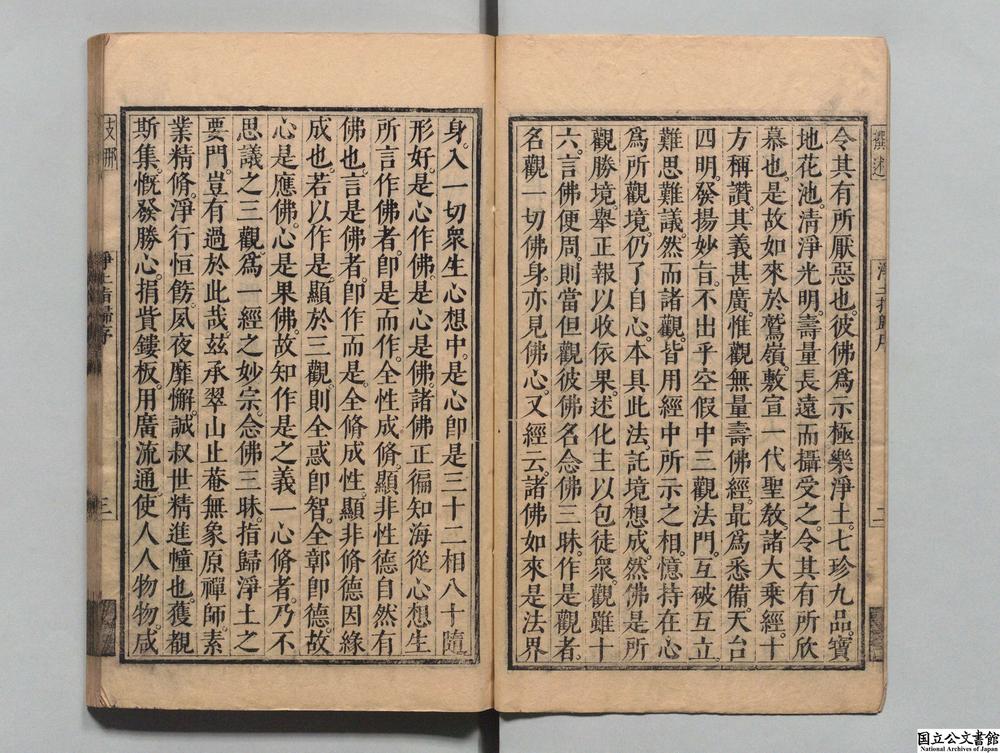 撰述
令其有所厭惡也。彼佛爲示極樂淨土。七珍九品。寶
地花池。清淨光明。壽量長遠而攝受之。令其有所欣
慕也。是故如來於鷲嶺。敷宣一代聖教。諸大乘經。十
方稱讚。其義甚廣。惟觀無量壽佛經。最爲悉備。天台
四明。發揚妙旨。不出乎空假中三觀法門。互破互立
難思難議。然而諸觀。皆用經中所示之相。憶持在心
爲所觀境。仍了自心。本具此法。託境想成。然佛是所
觀勝境。舉正報以收依果。述化主以包徒衆。觀雖十
六。言佛便周。則當但觀彼佛名念佛三昧。作是觀者。
名觀一切佛身。亦見佛心。又經云。諸佛如來是法界
二
身。入一切衆生心想中。是心卽是三十二相八十隨
形好。是心作佛。是心是佛。諸佛正徧知海從心想生
所言作佛者。卽是而作。全性成脩。顯非性德自然有
佛也。言是佛者。卽作而是。全脩成性。顯非脩德因緣
成也。若以作是。顯於三觀。則全惑卽智。全鄣卽德。故
心是應佛。心是果佛。故知作是之義。一心脩者。乃不
思議之三觀。爲一經之妙宗。念佛三昧。指歸淨土之
要門。豈有過於此哉。茲承翠山止菴無象原禪師。素
業精脩。淨行恒飭。夙夜靡懈。誠叔世精進幢也。獲覩
斯集。慨發勝心。捐貲鏤板。用廣流通。使人人物物。咸
支那
淨土指歸序
三
国立公文書館
National Archives of Japan